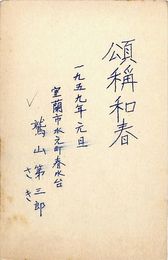 頌称和春
一九五九年元旦
室蘭市水元町春水台
鷲山第三郎
さき